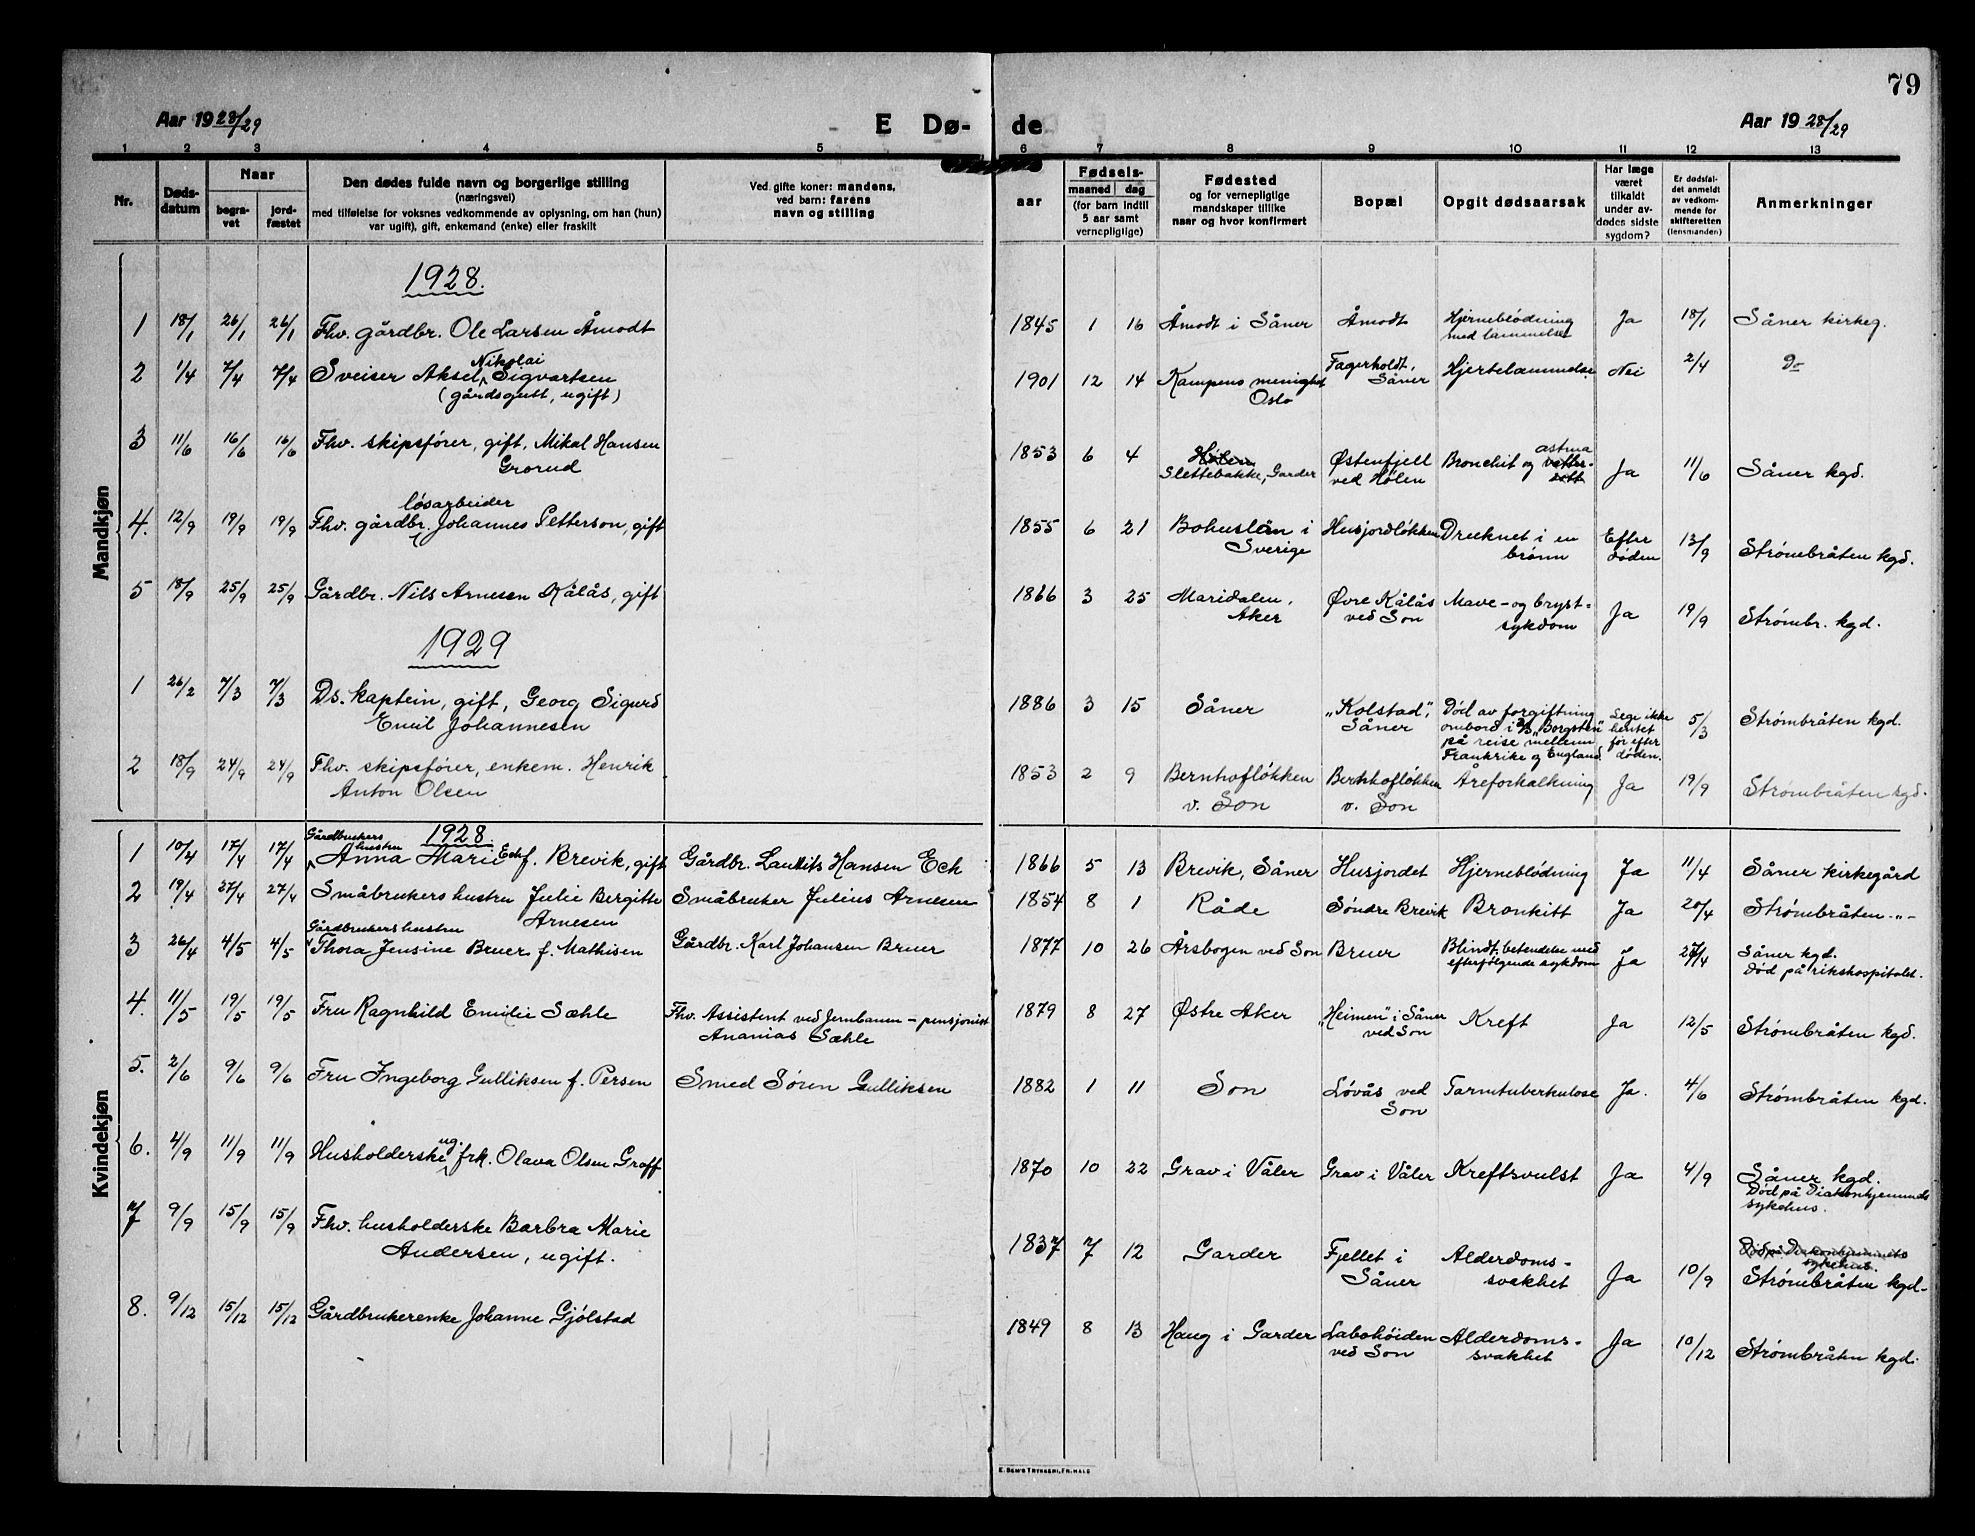 79
Aar 1928/29 E Dø- de Aar 1928/29
1 2 3 4 5 6 7 8 9 10 11 12 13
Nr.
Døds-
datum
Naar
begra-
vet
jord-
fæstet
Den dødes fulde navn og borgerlige stilling
(næringsvei)
med tilføielse for voksnes vedkommende av oplysning, om han (hun)
var ugift), gift, enkemand (enke) eller fraskilt
Ved gifte koner: mandens,
ved barn: farens
navn og stilling
aar
Fødsels-
maaned dag
(for barn indtil
5 aar samt
vernepligtige)
Fødested
og for vernepligtige
mandskaper tillike
naar og hvor konfirmert
Bopæl
Opgit dødsaarsak
Har læge
været
tilkaldt
under av-
dødes sidste
sygdom?
Er dødsfal-
det anmeldt
av vedkom-
mende for
skifteretten
(lensmanden)
Anmerkninger
Mandkjøn
1928.
1 18/1 26/1 26/1 Fhv. gårdbr. Ole Larsen Åmodt 1845 1 16 Åmodt i Såner Åmodt Hjerneblødning Ja 18/1 Såner kirkeg.
med lammelser
2 1/4 7/4 7/4 Sveiser Aksel Nikolai Sigvartsen 1901 12 14 Kampens menighet Fagerholdt, Hjertelammelse Nei 2/4 Do
(gårdsgutt, ugift) Oslo Såner
3 11/6 16/6 16/6 Fhv. skipsfører, gift, Mikal Hansen 1853 6 4 Hølen Østenfjell Bronchit og astma Ja 11/6 Såner kgd.
Grorud Slettebakke, Garder ved Hølen
4. 12/9 19/9 19/9 Fhv. gårdbr. løsarbeider Johannes Petterson, gift 1855 6 21 Bohuslän i Husjordløkken Drucknet i en Efter 13/9 Strømbråten kgd.
Sverige brønn døden
5 18/9 25/9 25/9 Gårdbr. Nils Arnesen Kålås, gift 1866 3 25 Maridalen, Øvre Kålås Mave- og bryst- Ja 19/9 Strømbr. kgd.
Aker ved Son sykdom
1929
1 26/2 7/3 7/3 Ds. kaptein, gift, Georg Sigurd 1886 3 15 Såner "Kolstad", Død av forgiftning Lege ikke 5/3 Strømbråten kgd.
Emil Johannesen Såner ombord i D/S "Borgsten" hentet
på reise mellem før efter
Frankrike og England. døden.
2 18/9 24/9 24/9 Fhv. skipsfører, enkem. Henrik 1853 2 9 Bernhofløkken Bernhofløkken Åreforkalkning Ja 19/9 Strømbråten kgd.
Anton Olsen v. Son v. Son
Kvindekjøn
1928
1 10/4 17/4 17/4 Gårdbrukers hustru Anna Marie Ech f. Brevik, gift Gårdbr. Laurits Hansen Ech 1866 5 13 Brevik, Såner Husjordet Hjerneblødning Ja 11/4 Såner kirkegård
2 19/4 27/4 27/4 Småbrukers hustru Julie Bergitte Småbruker Julius Arnesen 1854 8 1 Råde Søndre Brevik Bronkitt Ja 20/4 Strømbråten -"-
Arnesen
3 26/4 4/5 4/5 Gårdbrukers hustru Thora Jensine Bruer f. Mathisen Gårdbr. Karl Johansen Bruer 1877 10 26 Årsbogen ved Son Bruer Blindt. betendelse med Ja 27/4 Såner kgd.
efterfølgende sykdom Død på rikshospitalet.
4. 11/5 19/5 19/5 Fru Ragnhild Emilie Sæhle Fhv. Assistent ved Jernbanen - pensjonist 1879 8 27 Østre Aker "Heimen" i Såner Kreft Ja 12/5 Strømbråten kgd.
Ananias Sæhle ved Son
5. 2/6 9/6 9/6 Fru Ingeborg Gulliksen f. Persen Smed Søren Gulliksen 1882 1 11 Son Løvås ved Tarmtuberkulose Ja. 4/6 Strømbråten kgd.
Son
6. 4/9 11/9 11/9 Husholderske ug. frk. Olava Olsen Graff 1870 10 22 Grav i Våler Grav i Våler Kreftsvulst Ja 4/9 Såner kgd.
Død på Diakonhjemmets
sykehus.
7 9/9 15/9 15/9 Fhv. husholderske Barbra Marie 1837 7 12 Garder Fjellet i Alderdoms- Ja 10/9 Død på Diakonhjemmets
sykehus.
Andersen, ugift. Såner svakhet Strømbråten kgd.
8. 9/12 15/12 15/12 Gårdbrukerenke Johanne Gjølstad 1849 8 13 Haug i Garder Labohøiden Alderdoms- Ja 10/12 Strømbråten kgd.
ved Son svakhet